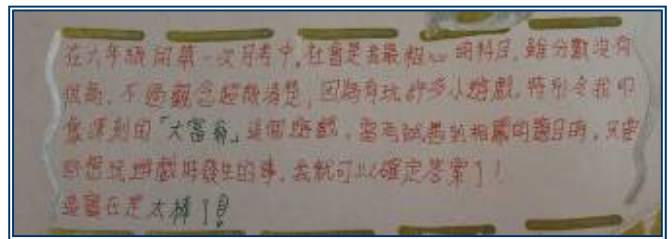 在六年級的第一次月考中,社會是我最粗心的科目,雖分數沒有
很高,不過觀念超級清楚,因為有玩許多小遊戲,特別令我印
象深刻的「大富翁」這個遊戲,當考試遇到相關的題目時,只要
回想玩遊戲時發生的事,我就可以確定答案了!
這實在是太棒了!